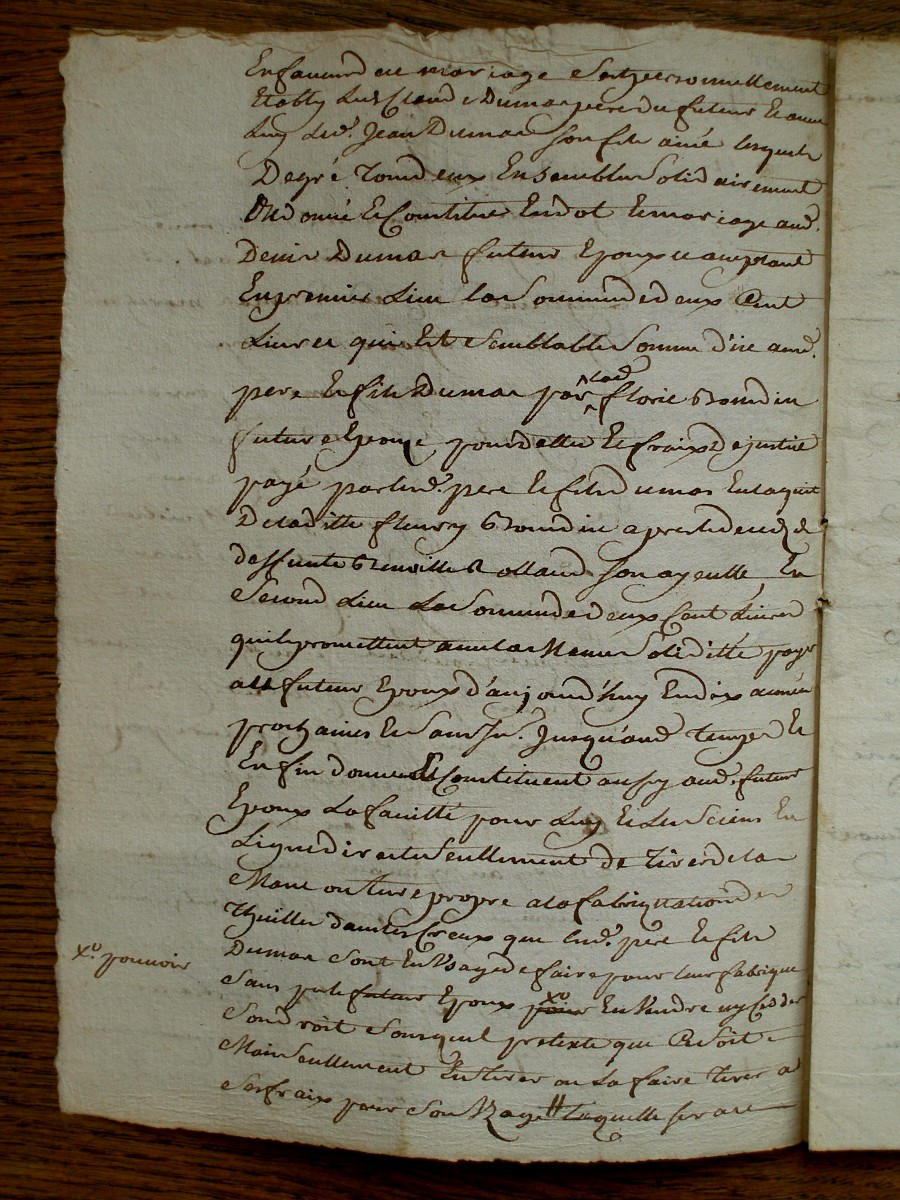 En faveur de ce mariage s'est personnellement
Etably led. Claude Dumas pere du futeur Et avec
Luy led. Jean Dumas son fils ainé lesquels
De gré Tous deux Ensembles Solidairement
Ont donné Et Constitué En dot Et mariage aud.
Denis Dumas futeur Epoux ce acceptant
En premier Lieu la Somme de deux Cent
Livres qui Est Semblable Somme düe aud.
pere Et fils Dumas par lad. florie
future Epouse pour dettes Et fraix de justice
payé par lesd. pere Et fils Dumas En laquit
De laditte fleury apres le deces de
deffunte Rolland son ayeulle, En
Second Lieu La Somme de deux Cent Livres
quils promettent avec la Meme Solidité payer
aud. futeur Epoux d'aujourd'huy En dix années
prochaines Et Sans Jn. Jusqu'aud. temps Et
En fin donnent Et Constituent aussy aud. futeur
Epoux La faculté pour Luy Et Les Sciens En
Ligne directe Seullement de Tirer de la
propre a la fabriquation des
Thuilles dans les Creux que lesd. pere Et fils
Dumas Sont En Usage de faire pour leur fabrique
Sans que le futeur Epoux xº En Vendre ny Ceder
Son droit Sous quel pretexte que Ce Soit
Mais Seullement En tirer ou La faire tirer a
Ses fraix pour Son Uzage H Laquelle sera
xº. pouvoir